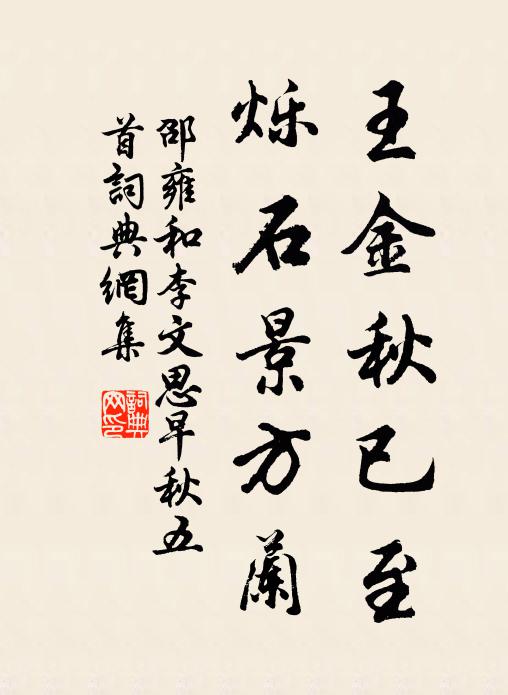 王金秋已至
烁石景方蘭
邵雍和李文思早秋五
首詞典網集
詞典
网印